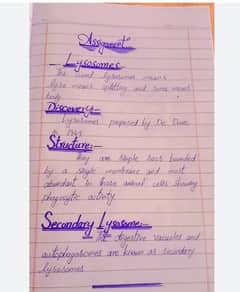 Assignment
Lysosomes
The word lysosomes means
lyso means splitting and soma means
body.
Discovery:-
Lysosomes prepared by De Duve
in 1949
Structure:-
They are simple sacs bounded
by a single membrane and most
abundant in those animal cells showing
phagocytic activity.
Secondary Lysosome:-
The digestive vacuoles and
autophagosomes are known as secondary
lysosomes